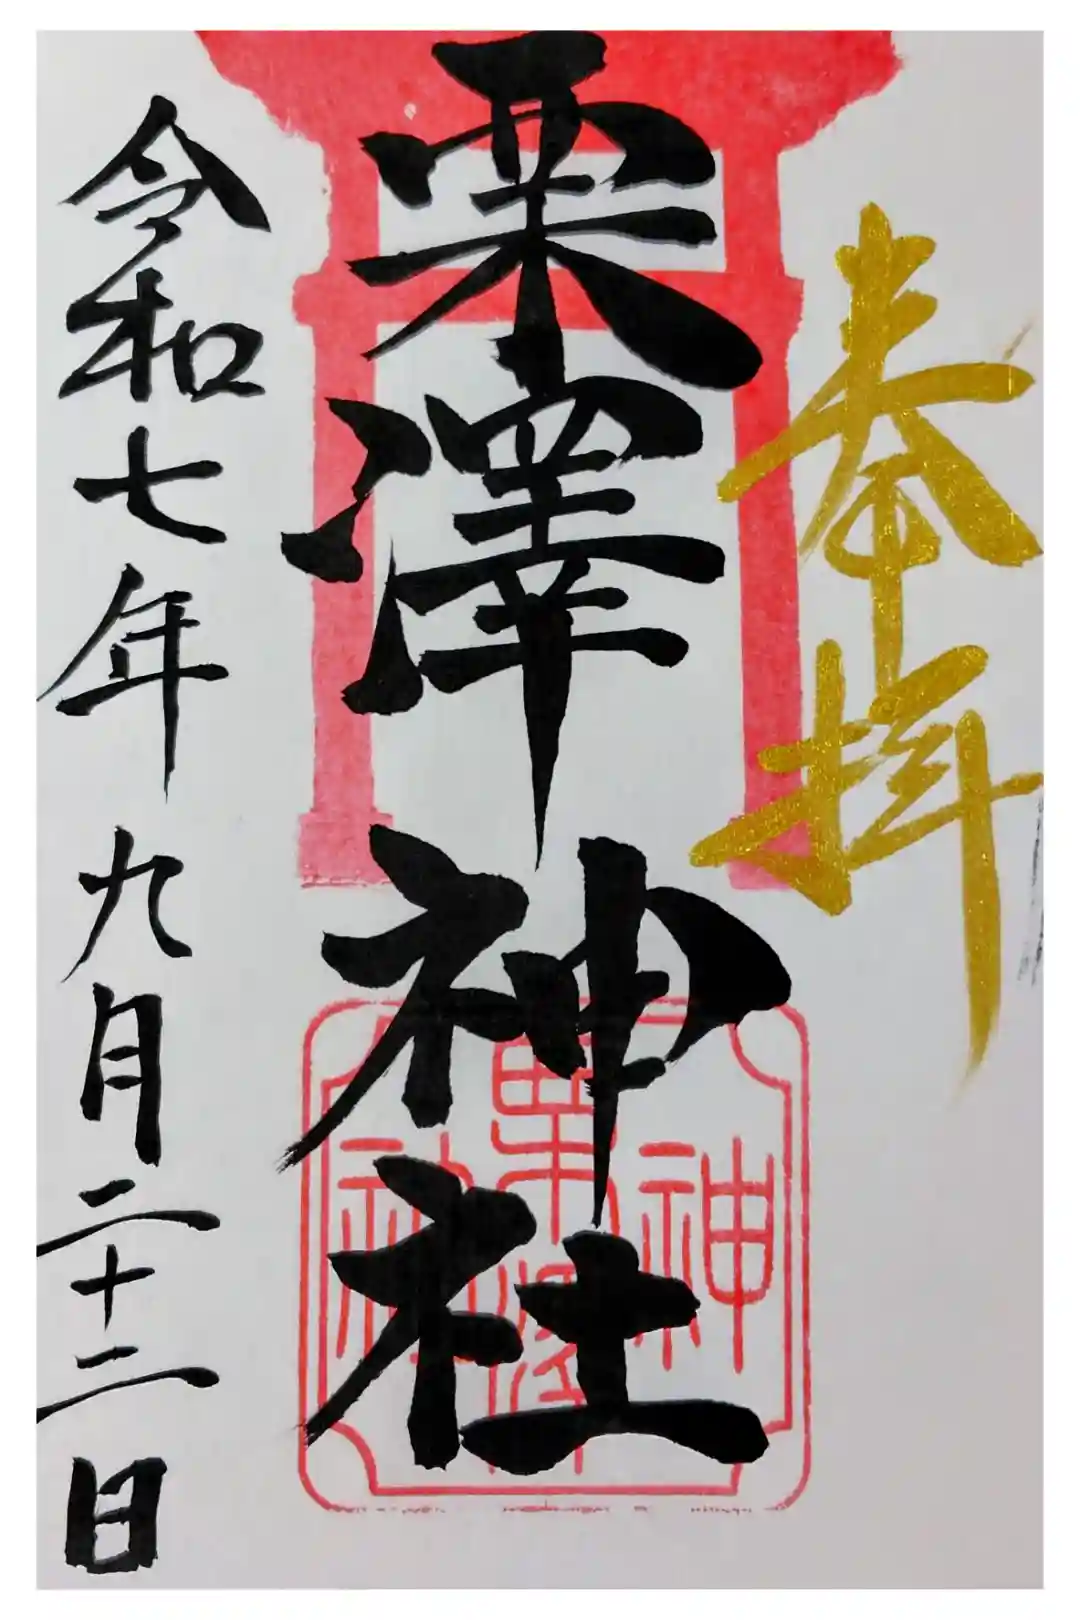 奉拝
栗澤神社
令和七年九月二十二日
栗澤神社